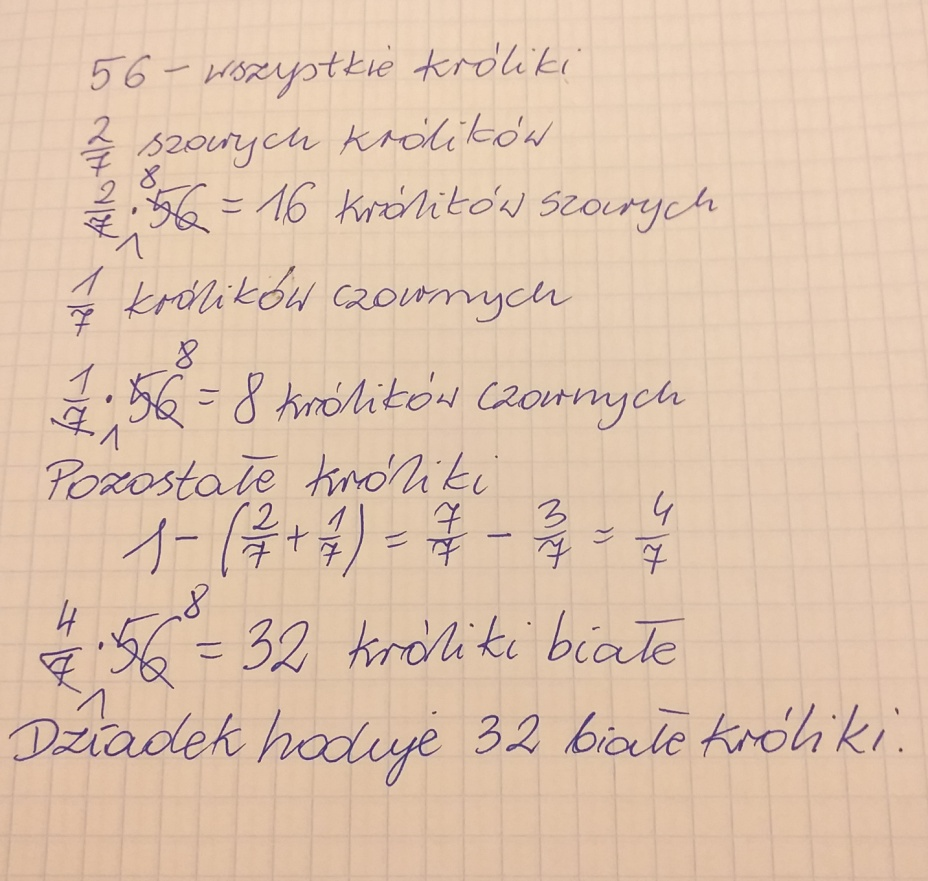 56 - wszystkie króliki
2/7 szarych królików
2/7 · 56 8 1 = 16 królików szarych
1/7 królików czarnych
1/7 · 56 8 1 = 8 królików czarnych
Pozostałe króliki
1 - (2/7 + 1/7) = 7/7 - 3/7 = 4/7
4/7 · 56 8 1 = 32 króliki białe
Dziadek hoduje 32 białe króliki.